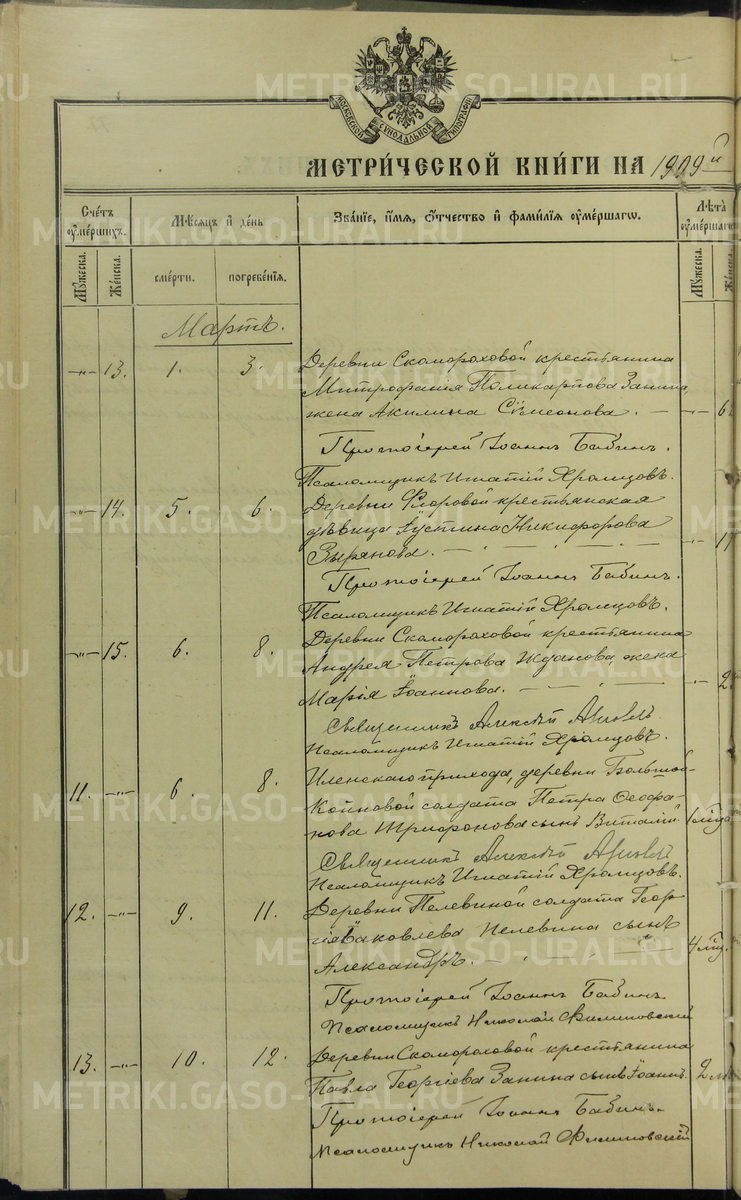 МОСКОВСКОЙ СѴНОДАЛЬНОЙ ТИПОГРАФІИ
МЕТРИ́ЧЕСКОЙ КНИ́ГИ НА 1909й
Сче́тъ ᲂу҆ме́ршихъ.
Мѣ́сѧцъ и҆ де́нь
Зва́нїе, и҆́мѧ, ѻ҆́тчество и҆ фами́лїѧ ᲂу҆ме́ршагѡ.
Лѣ́та ᲂу҆ме́ршагѡ
Мꙋ́жеска.
Же́нска.
сме́рти.
погребе́нїѧ.
Мꙋ́жеска.
Же́нска.
Мартъ.
-"- 13. 1. 3. Деревни Скомороховой крестьянина
Митрофанія Поликарпова Занина,
жена Акилина Сѵмеонова. — -"- 6
Протоіерей Іоаннъ Бабинъ.
Псаломщикъ Игнатій Храмцовъ.
-"- 14. 5. 6. Деревни Флоровой крестьянская
дѣвица Іустина Никифорова
Зырянова. -"- 17
Протоіерей Іоаннъ Бабинъ.
Псаломщикъ Игнатій Храмцовъ.
-"- 15. 6. 8. Деревни Скомороховой крестьянина
Андрея Петрова Жданова, жена
Марія Іоаннова. -"- 2
Священникъ Алексѣй
Псаломщикъ Игнатій Храмцовъ.
11. -"- 6. 8. Иленскаго прихода, деревни Большой
Койновой солдата Петра Ѳеофа-
нова Трифонова сынъ Виталій 1 мѣсц.
Священникъ Алексѣй
Псаломщикъ Игнатій Храмцовъ.
12. -"- 9. 11. Деревни Пелевиной солдата Геор-
гія Іаковлева Пелевина сынъ
Александръ. 4 мѣц.
Протоіерей Іоаннъ Бабинъ
Псаломщикъ Николай Филиповскій
13. -"- 10. 12. Деревни Скомороховой крестьянина
Павла Георгіева Занина сынъ Іоаннъ. 2
Протоіерей Іоаннъ Бабинъ.
Псаломщикъ Николай Филиповскій
METRIKI.GASO-URAL.RU